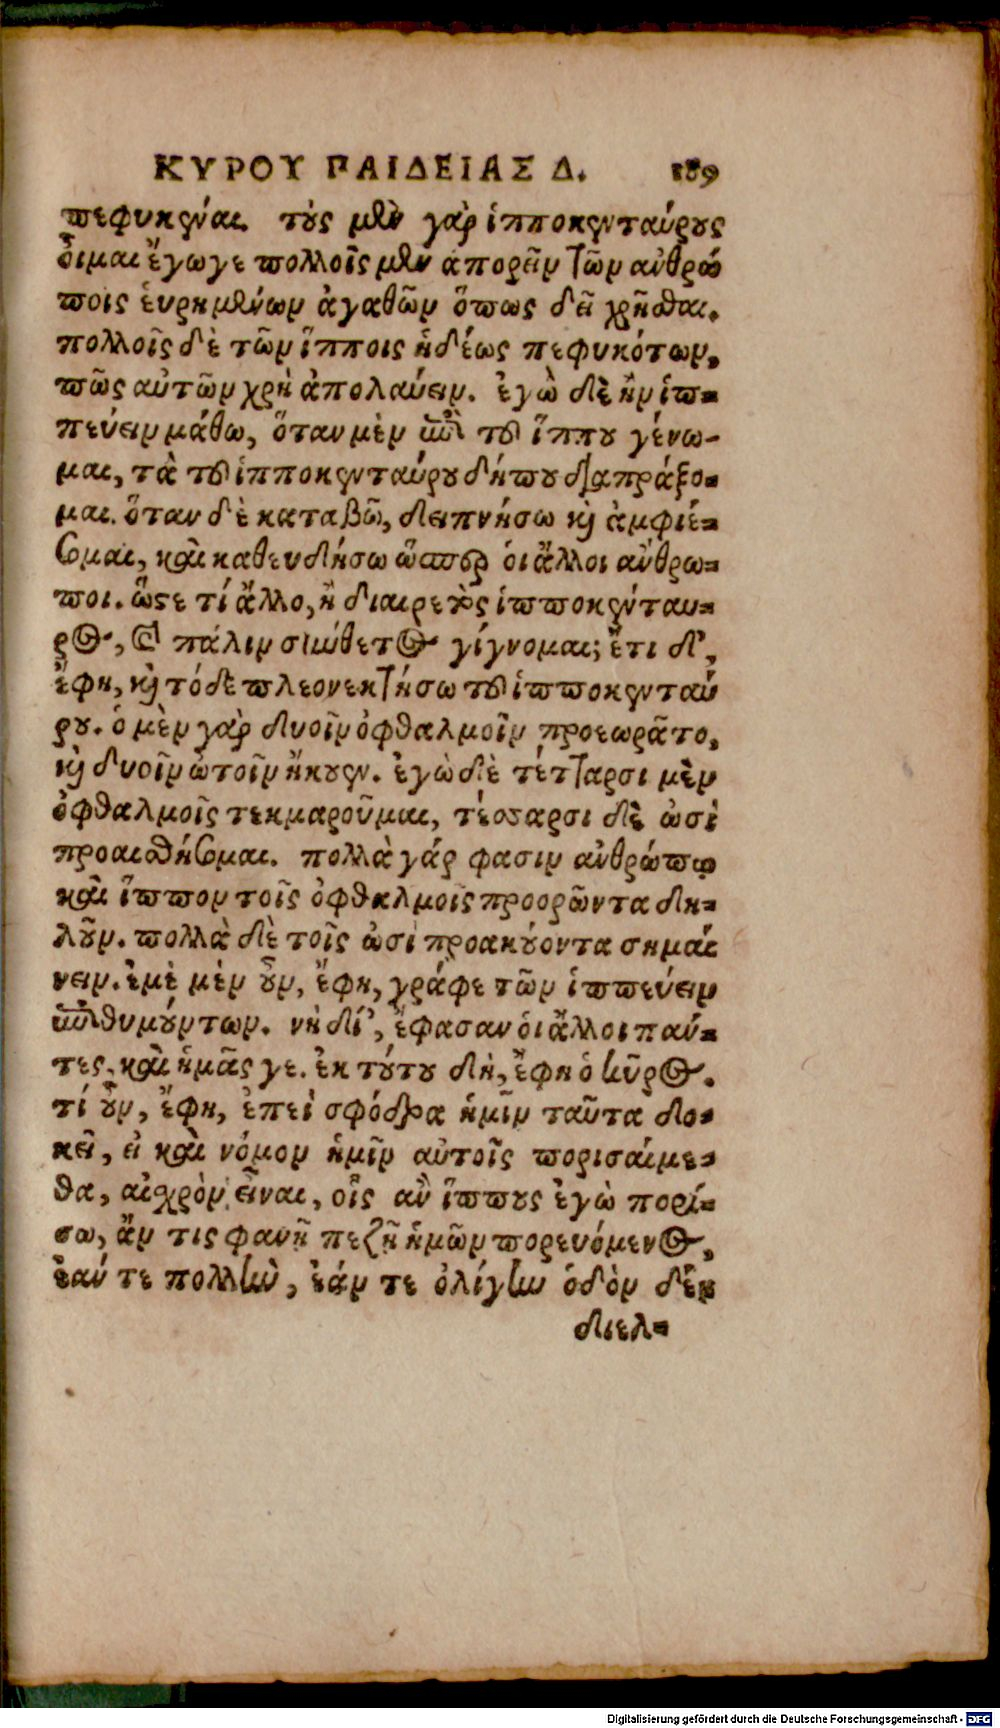 ΚΥΡΟΥ ΠΑΙΔΕΙΑΣ Δ. 189
πεφυκέναι. τοὺς μὲν γὰρ ἱπποκενταύρους
οἶμαι ἔγωγε πολλοῖς μὲν ἀπορεῖν τῶν ἀνθρώ
ποις εὑρημένων ἀγαθῶν ὅπως δεῖ χρῆσθαι.
πολλοῖς δὲ τῶν ἵπποις ἡδέως πεφυκότων,
πῶς αὐτῶν χρὴ ἀπολαύειν. ἐγὼ δὲ ἢν ἱπ-
πεύειν μάθω, ὅταν μὲν ἐπὶ τοῦ ἵππου γένω-
μαι, τὰ τοῦ ἱπποκενταύρου δήπου διαπράξο-
μαι. ὅταν δὲ καταβῶ, δειπνήσω καὶ ἀμφιέ-
σομαι, καὶ καθευδήσω ὥσπερ οἱ ἄλλοι ἄνθρω-
ποι. ὥστε τί ἄλλο, ἢ διαιρετὸς ἱπποκένταυ-
ρος, καὶ πάλιν σύνθετος γίγνομαι; ἔτι δ',
ἔφη, καὶ τόδε πλεονεκτήσω τοῦ ἱπποκενταύ
ρου. ὁ μὲν γὰρ δυοῖν ὀφθαλμοῖν προεωρᾶτο,
καὶ δυοῖν ὠτοῖν ἤκουεν. ἐγὼ δὲ τέτταρσι μὲν
ὀφθαλμοῖς τεκμαροῦμαι, τέσσαρσι δὲ ὠσὶ
προαισθήσομαι. πολλὰ γάρ φασιν ἀνθρώπῳ
καὶ ἵππον τοῖς ὀφθαλμοῖς προορῶντα δη-
λοῦν. πολλὰ δὲ τοῖς ὠσὶ προακούοντα σημαί
νειν. ἐμὲ μὲν οὖν, ἔφη, γράφε τῶν ἱππεύειν
ἐπιθυμούντων. νὴ δί', ἔφασαν οἱ ἄλλοι πάν-
τες, καὶ ἡμᾶς γε. ἐκ τούτου δὴ, ἔφη ὁ κῦρος.
τί οὖν, ἔφη, ἐπεὶ σφόδρα ἡμῖν ταῦτα δο-
κεῖ, εἰ καὶ νόμον ἡμῖν αὐτοῖς πορισαίμε-
θα, αἰσχρὸν εἶναι, οἷς ἂν ἵππους ἐγὼ πορί-
σω, ἄν τις φανῇ πεζῇ ἡμῶν πορευόμενος,
ἐάν τε πολλὴν, ἐάν τε ὀλίγην ὁδὸν δέῃ
διελ-
Digitalisierung gefördert durch die Deutsche Forschungsgemeinschaft - DFG